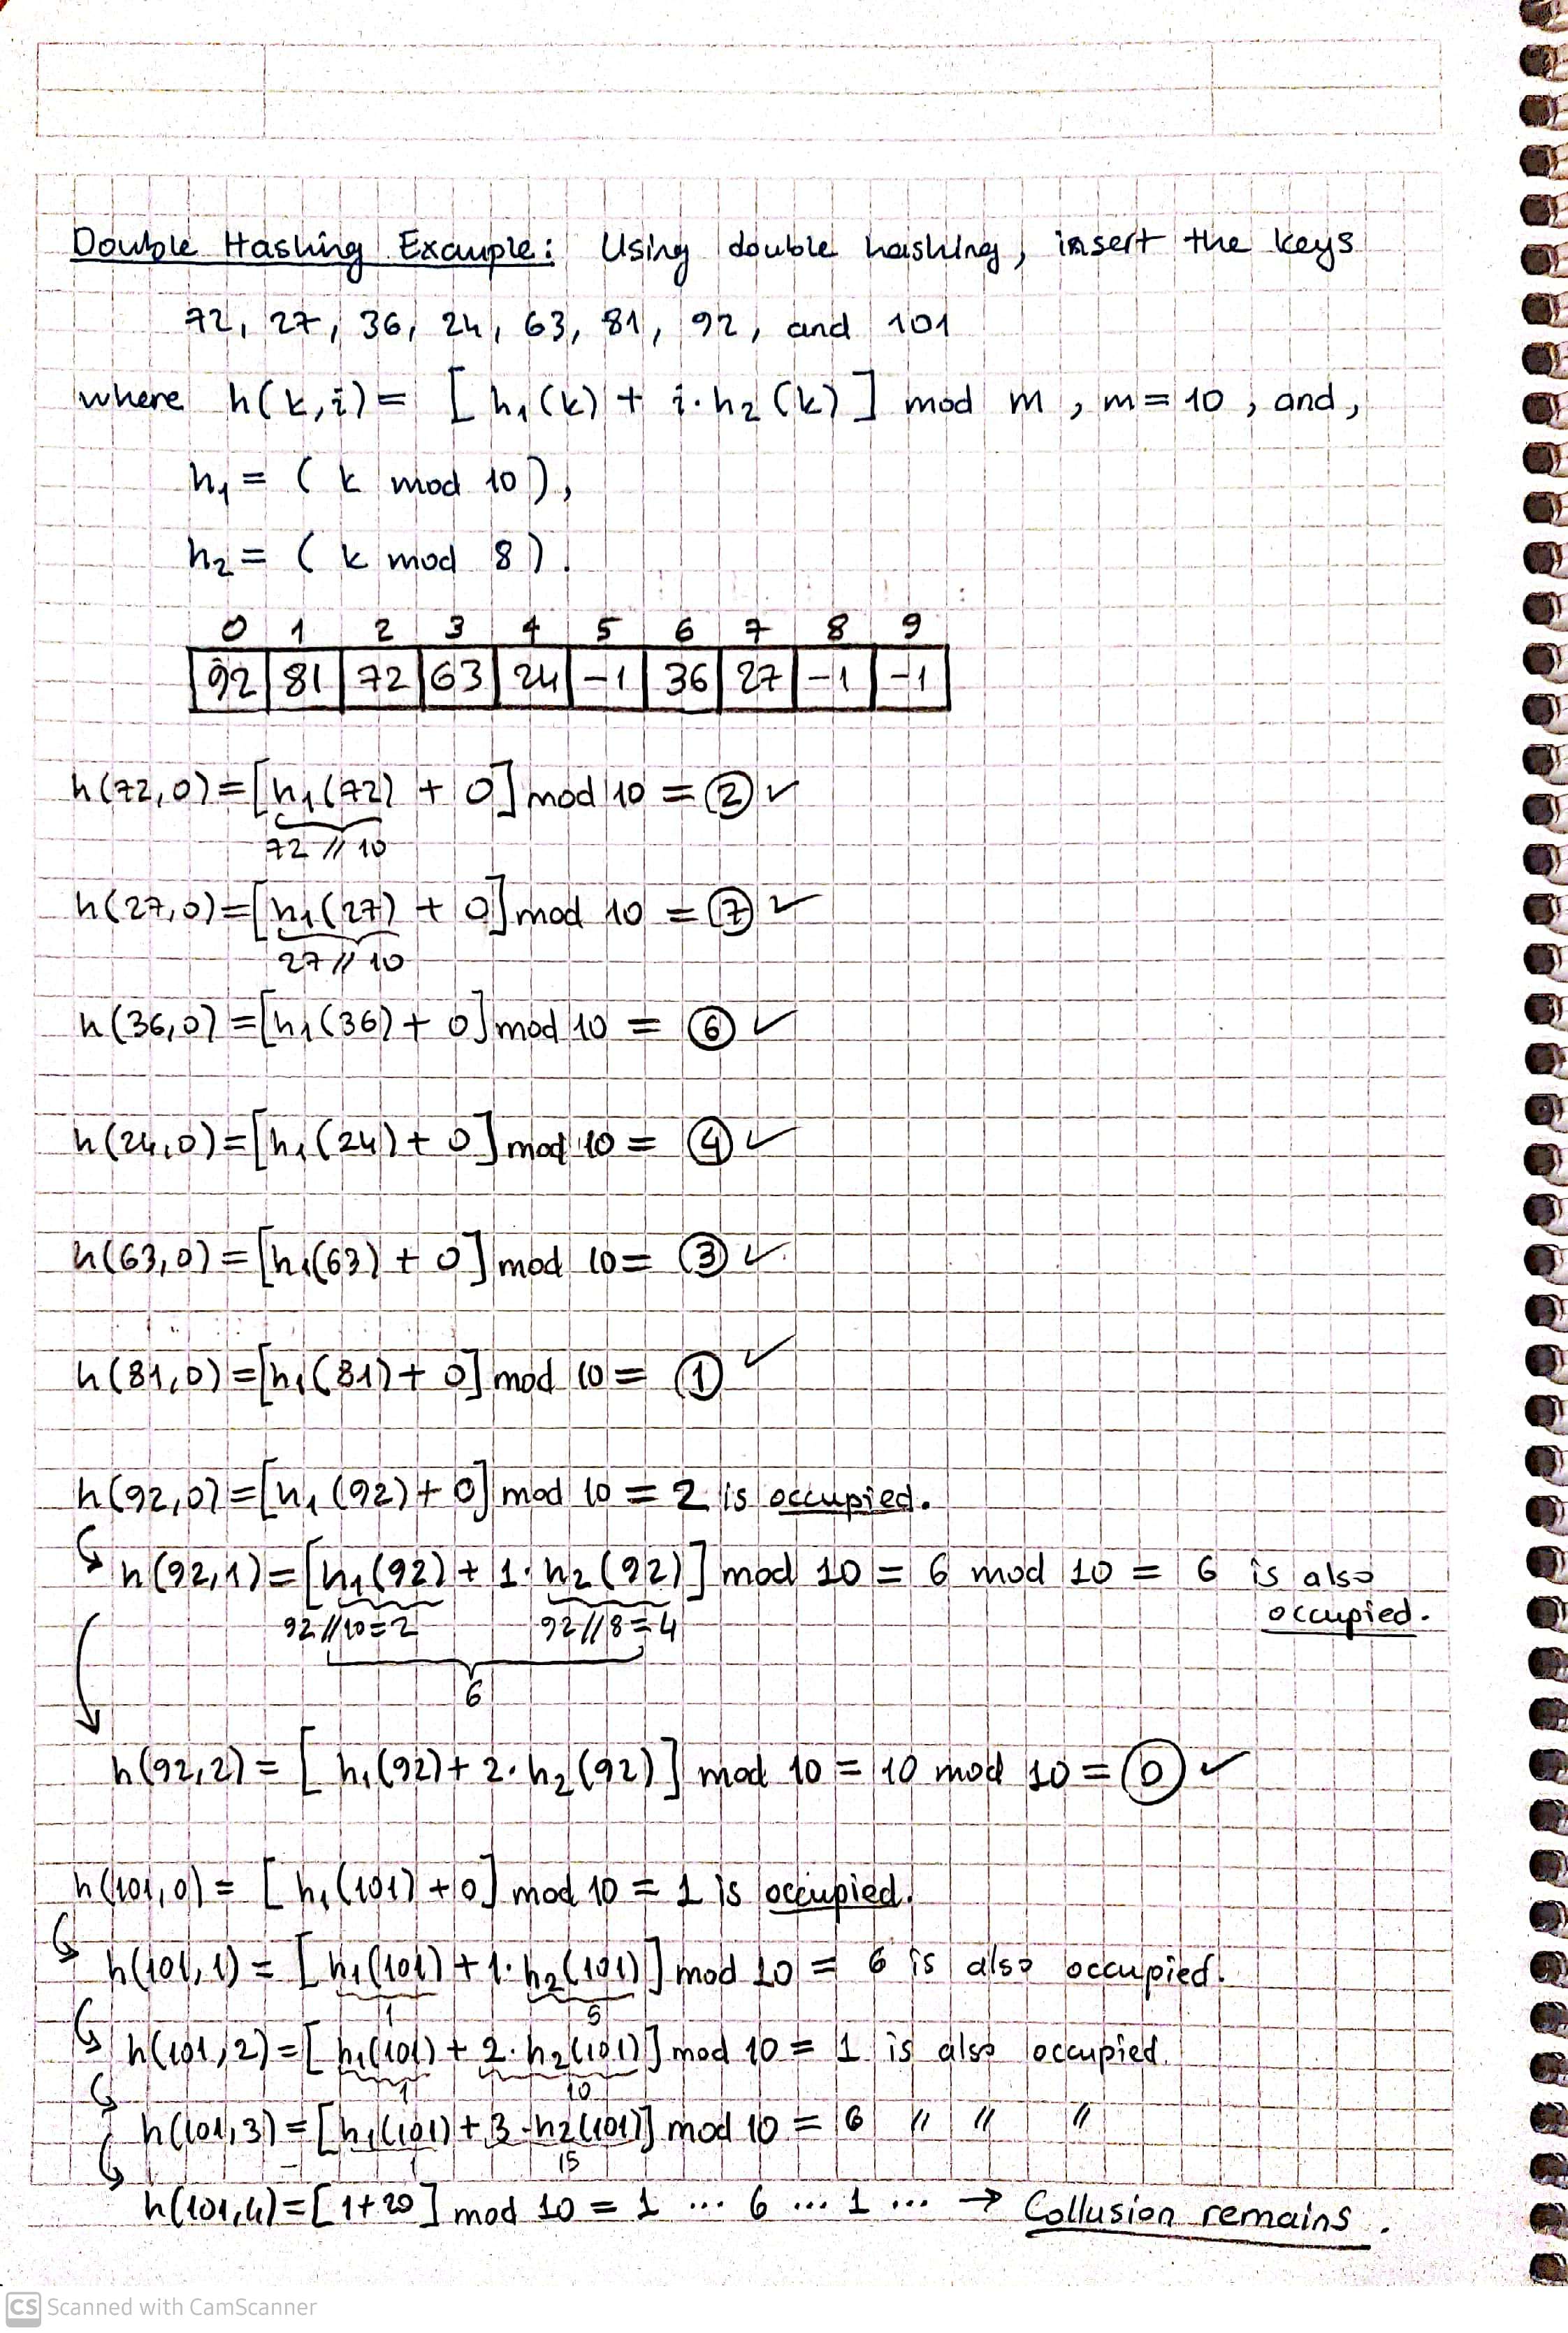 Double Hashing Example: Using double hashing, insert the keys
72, 27, 36, 24, 63, 81, 92, and 101
where h(k,i) = [h₁(k) + i·h₂(k)] mod m, m = 10, and,
h₁ = (k mod 10),
h₂ = (k mod 8).
0 1 2 3 4 5 6 7 8 9
92 81 72 63 24 -1 36 27 -1 -1
h(72,0) = [h₁(72) + 0] mod 10 = 2 ✓
72 // 10
h(27,0) = [h₁(27) + 0] mod 10 = 7 ✓
27 // 10
h(36,0) = [h₁(36) + 0] mod 10 = 6 ✓
h(24,0) = [h₁(24) + 0] mod 10 = 4 ✓
h(63,0) = [h₁(63) + 0] mod 10 = 3 ✓
h(81,0) = [h₁(81) + 0] mod 10 = 1 ✓
h(92,0) = [h₁(92) + 0] mod 10 = 2 is occupied.
h(92,1) = [h₁(92) + 1·h₂(92)] mod 10 = 6 mod 10 = 6 is also
occupied.
92//10=2 92//8=4
6
h(92,2) = [h₁(92) + 2·h₂(92)] mod 10 = 10 mod 10 = 0 ✓
h(101,0) = [h₁(101) + 0] mod 10 = 1 is occupied.
h(101,1) = [h₁(101) + 1·h₂(101)] mod 10 = 6 is also occupied.
1 5
h(101,2) = [h₁(101) + 2·h₂(101)] mod 10 = 1 is also occupied.
1 10
h(101,3) = [h₁(101) + 3·h₂(101)] mod 10 = 6 " " "
1 15
h(101,4) = [1+20] mod 10 = 1 ... 6 ... 1 ... → Collusion remains.
CS Scanned with CamScanner